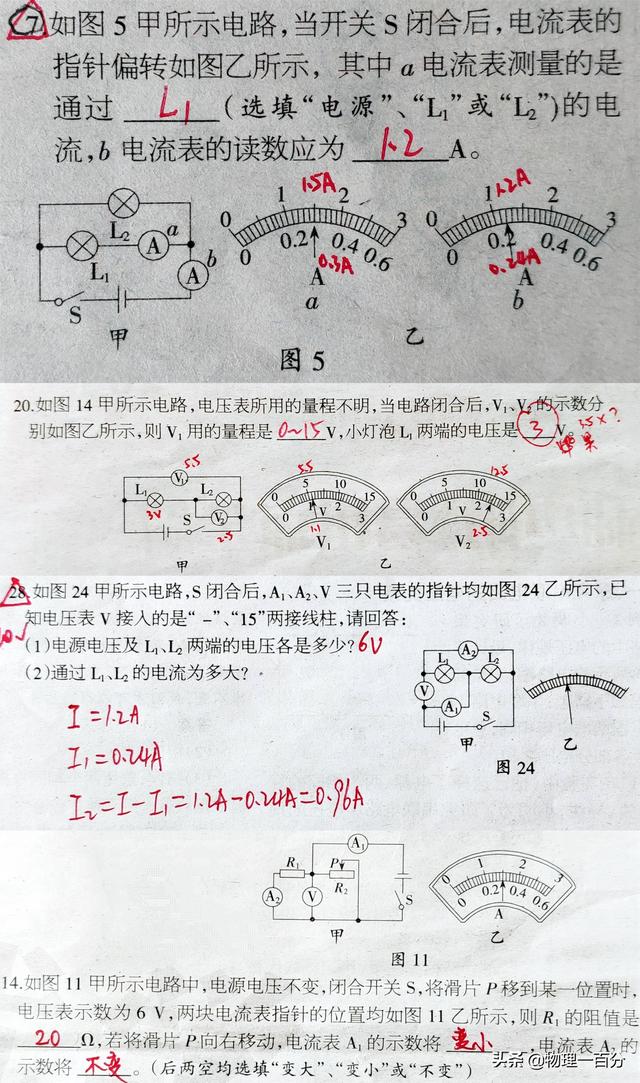 7.如图5甲所示电路,当开关S闭合后,电流表的
指针偏转如图乙所示,其中a电流表测量的是
通过 L₁ (选填“电源”、“L₁”或“L₂”)的电
流,b电流表的读数应为 1.2 A。
L₂
L₁
A
a
A
b
S
甲
1.5A
0 1 2 3
0 0.2 0.4 0.6
0.3A
A
a
1.2A
0 1 2 3
0 0.2 0.4 0.6
0.24A
A
b
乙
图5
20.如图14甲所示电路,电压表所用的量程不明,当电路闭合后,V₁、V₂的示数分
别如图乙所示,则V₁用的量程是 0~15 V,小灯泡L₁两端的电压是 3 V。
5.5
V₁
L₁
L₂
V₂
3V
S
2.5
甲
5.5
0 5 10 15
0 1 2 3
V
1.1
V₁
12.5
0 5 10 15
0 1 2 3
V
2.5
V₂
乙
28.如图24甲所示电路,S闭合后,A₁、A₂、V三只电表的指针均如图24乙所示,已
知电压表V接入的是“-”、“15”两接线柱,请回答:
(1)电源电压及L₁、L₂两端的电压各是多少? 6V
(2)通过L₁、L₂的电流为多大?
I=1.2A
I₁=0.24A
I₂=I-I₁=1.2A-0.24A=0.96A
A₂
L₁
L₂
V
A₁
S
甲
乙
图24
A₁
R₁
P
R₂
A₂
V
S
甲
0 1 2 3
0 0.2 0.4 0.6
A
乙
图11
14.如图11甲所示电路中,电源电压不变,闭合开关S,将滑片P移到某一位置时,
电压表示数为6V,两块电流表指针的位置均如图11乙所示,则R₁的阻值是
20 Ω,若将滑片P向右移动,电流表A₁的示数将 变小 ,电流表A₂的
示数将 不变 。(后两空均选填“变大”、“变小”或“不变”)
头条@物理一百分